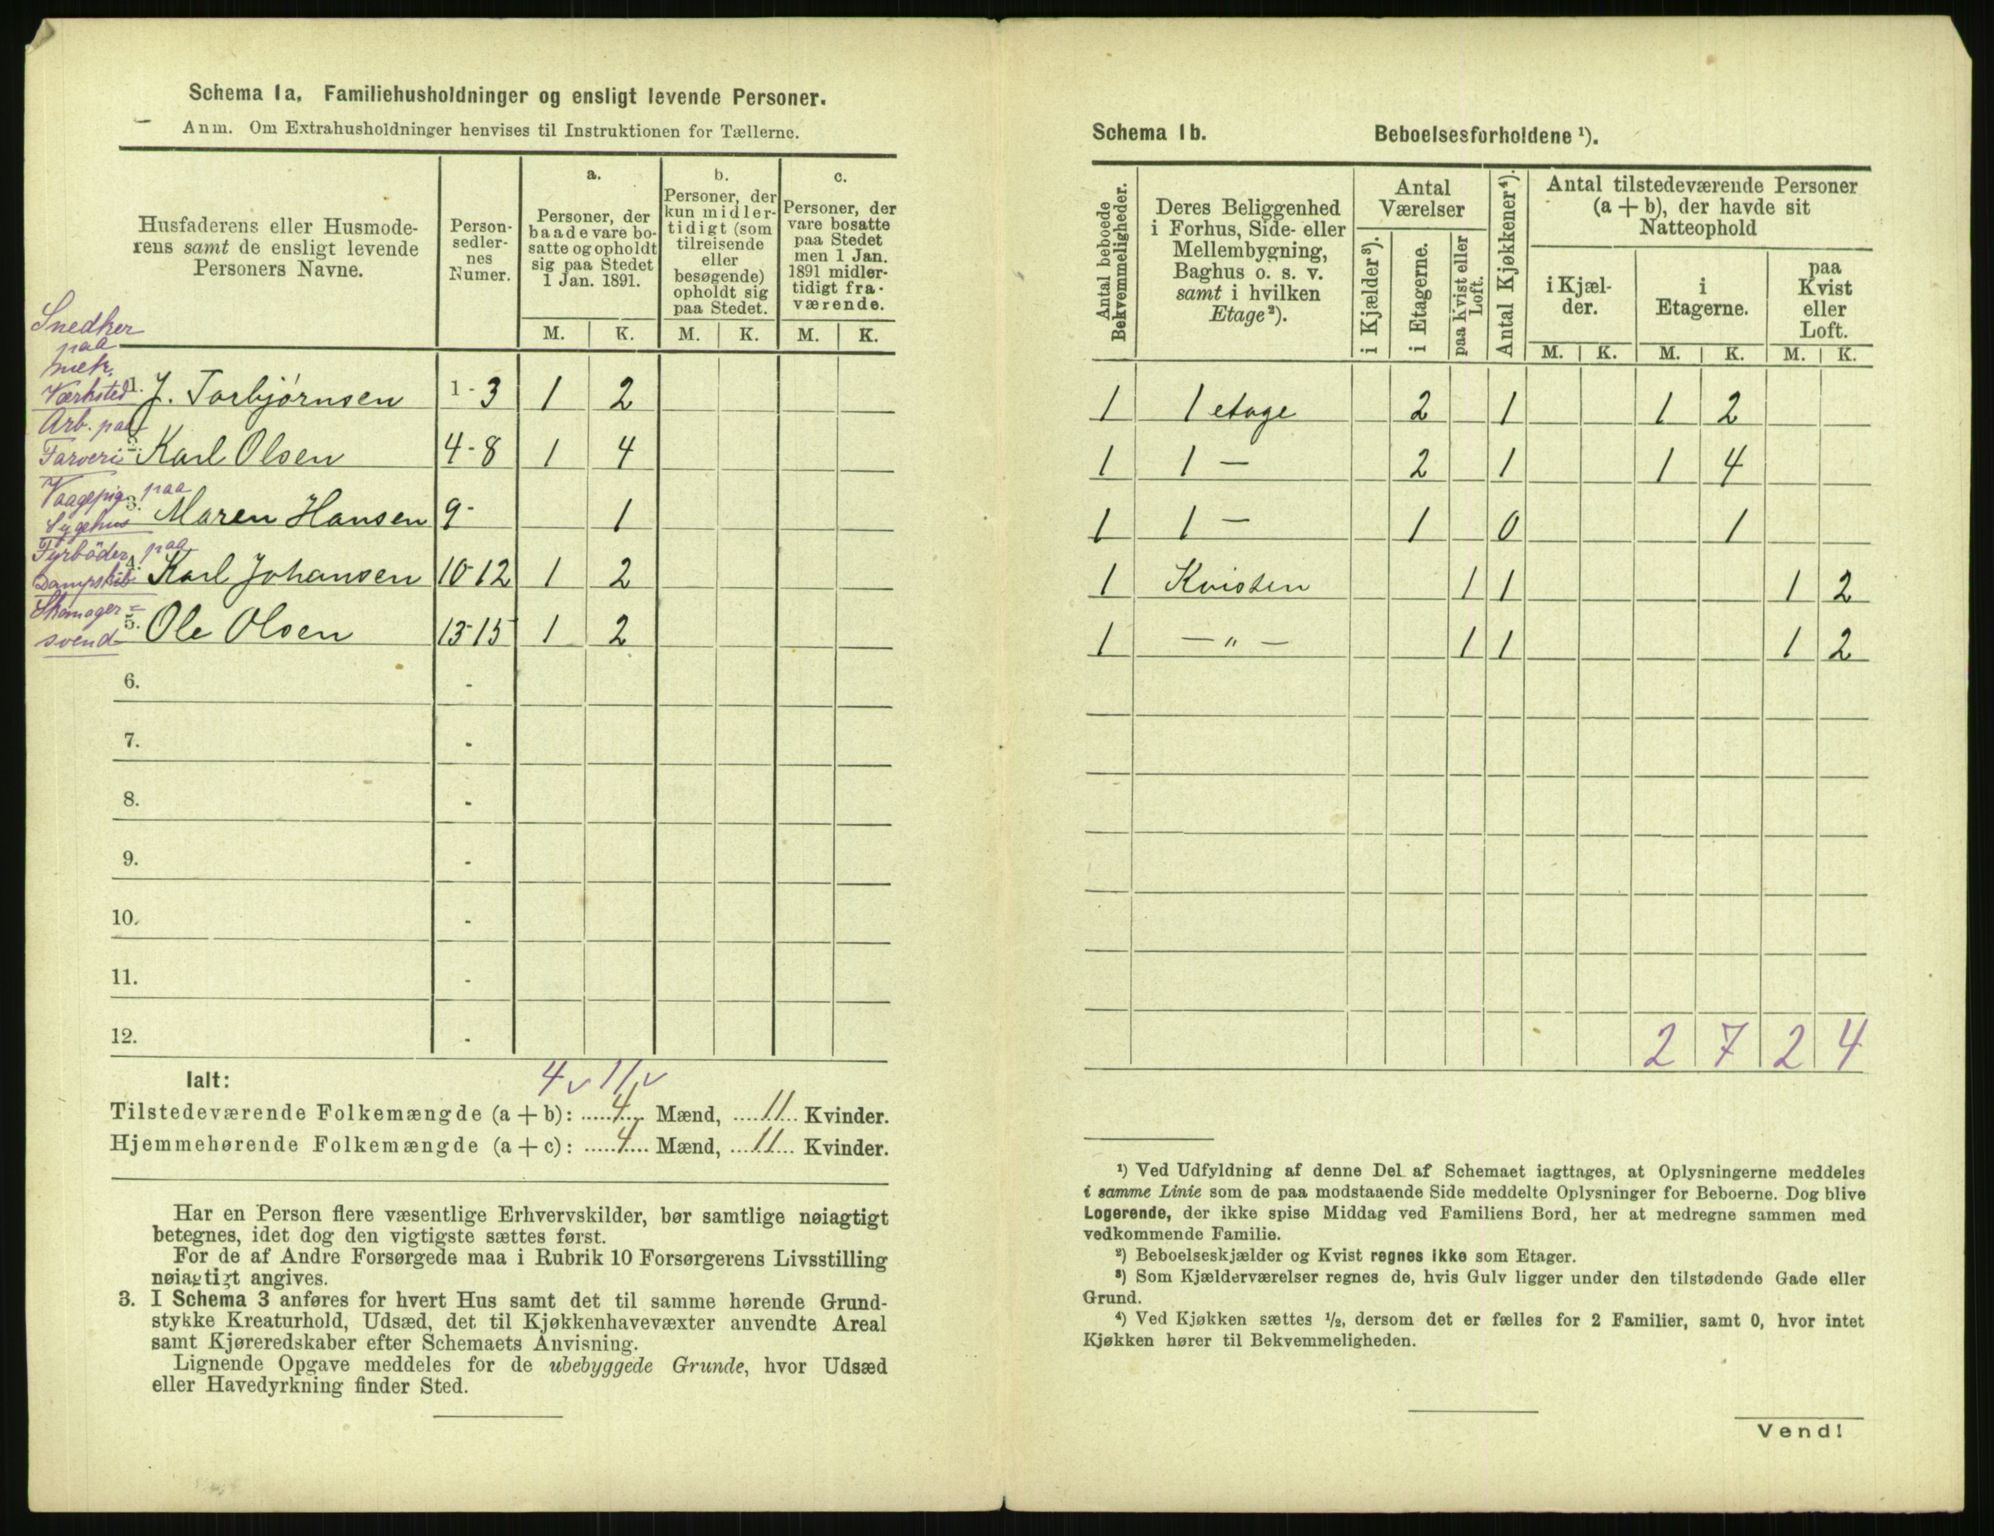 Schema 1a. Familiehusholdninger og ensligt levende Personer.
Anm. Om Extrahusholdninger henvises til Instruktionen for Tællerne.
Husfaderens eller Husmode-
rens samt de ensligt levende
Personers Navne.
Person-
sedler-
nes
Numer.
a.
Personer, der
baade vare bo-
satte og opholdt
sig paa Stedet
1 Jan. 1891.
b.
Personer, der
kun midler-
tidigt (som
tilreisende
eller
besøgende)
opholdt sig
paa Stedet.
c.
Personer, der
vare bosatte
paa Stedet
men 1 Jan.
1891 midler-
tidigt fra-
værende.
M. K. M. K. M. K.
Snedker
paa
mek.
Værksted 1. J. Torbjørnsen 1-3 1 2
Arb. paa
Farveri 2. Karl Olsen 4-8 1 4
Vaagepig paa
Sygehus 3. Maren Hansen 9- 1
Fyrbøder paa
Dampskib 4. Karl Johansen 10-12 1 2
Skomager=
svend 5. Ole Olsen 13-15 1 2
6. -
7. -
8. -
9. -
10. -
11. -
12. -
Ialt: 4 v 11 v
Tilstedeværende Folkemængde (a + b): 4 Mænd, 11 Kvinder.
Hjemmehørende Folkemængde (a + c): 4 Mænd, 11 Kvinder.
Har en Person flere væsentlige Erhvervskilder, bør samtlige nøiagtigt
betegnes, idet dog den vigtigste sættes først.
For de af Andre Forsørgede maa i Rubrik 10 Forsørgerens Livsstilling
nøiagtigt angives.
3. I Schema 3 anføres for hvert Hus samt det til samme hørende Grund-
stykke Kreaturhold, Udsæd, det til Kjøkkenhavevæxter anvendte Areal
samt Kjøreredskaber efter Schemaets Anvisning.
Lignende Opgave meddeles for de ubebyggede Grunde, hvor Udsæd
eller Havedyrkning finder Sted.
Schema 1b. Beboelsesforholdene ¹).
Antal beboede
Bekvemmeligheder.
Deres Beliggenhed
i Forhus, Side- eller
Mellembygning,
Baghus o. s. v.
samt i hvilken
Etage²).
Antal
Værelser
i Kjælder³).
i Etagerne.
paa Kvist eller
Loft.
Antal Kjøkkener⁴).
Antal tilstedeværende Personer
(a + b), der havde sit
Natteophold
i Kjæl-
der.
i
Etagerne.
paa
Kvist
eller
Loft.
M. K. M. K. M. K.
1 1 etage 2 1 1 2
1 1 — 2 1 1 4
1 1 — 1 0 1
1 Kvisten 1 1 1 2
1 — „ — 1 1 1 2
2 7 2 4
¹) Ved Udfyldning af denne Del af Schemaet iagttages, at Oplysningerne meddeles
i samme Linie som de paa modstaaende Side meddelte Oplysninger for Beboerne. Dog blive
Logerende, der ikke spise Middag ved Familiens Bord, her at medregne sammen med
vedkommende Familie.
²) Beboelseskjælder og Kvist regnes ikke som Etager.
³) Som Kjælderværelser regnes de, hvis Gulv ligger under den tilstødende Gade eller
Grund.
⁴) Ved Kjøkken sættes ½, dersom det er fælles for 2 Familier, samt 0, hvor intet
Kjøkken hører til Bekvemmeligheden.
Vend!